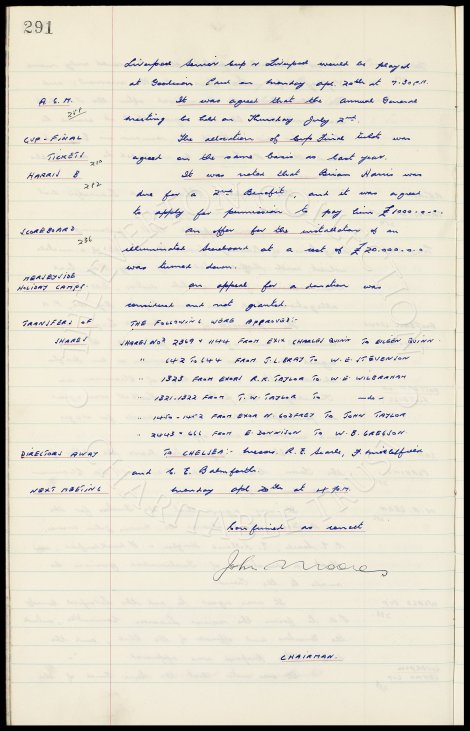 291
Liverpool Senior Cup v Liverpool would be played
at Goodison Park on Monday Apl. 20th at 7-30 P.M.
A.G.M. It was agreed that the Annual General
meeting be held on Thursday July 2nd.
CUP-FINAL The allocation of Cup Final tickets was
TICKETS agreed on the same basis as last year.
HARRIS B It was noted that Brian Harris was
due for a 2nd Benefit, and it was agreed
to apply for permission to pay him £1000.0.0.
SCOREBOARD An offer for the installation of an
236 illuminated Scoreboard at a cost of £20.000.0.0
was turned down.
MERSEYSIDE
HOLIDAY CAMPS. An appeal for a donation was
considered and not granted.
TRANSFERS OF THE FOLLOWING WERE APPROVED:-
SHARES SHARES Nos 2869 & 1144 FROM EXIX CHARLES QUINN TO EILEEN QUINN.
" 642 TO 644 FROM J.L. BRAY TO W.E. STEVENSON
" 1323 FROM EXORS R.R. TAYLOR TO W.E. WILBRAHAM
" 1321-1322 FROM T.W. TAYLOR TO -do-
" 1450-1452 FROM EXOR N. GODFREY TO JOHN TAYLOR
" 2443-444 FROM E. DONNISON TO W.B. GREGSON
DIRECTORS AWAY TO CHELSEA:- Messrs. R.E. Searle, F. Micklesfield
and C.E. Balmforth.
NEXT MEETING Monday Apl 20th at 4 P.M.
Confirmed as correct
John Moores
CHAIRMAN.